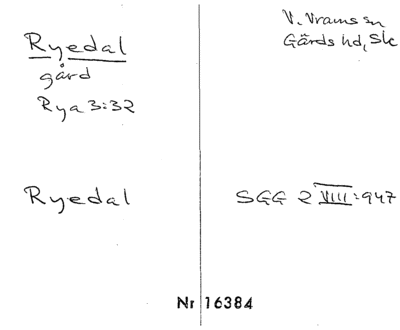 Ryedal
gård
Rya 3:32
V. Vrams sn
Gärds hd, Sk
Ryedal
SGG 2 VIII:947
Nr 16384